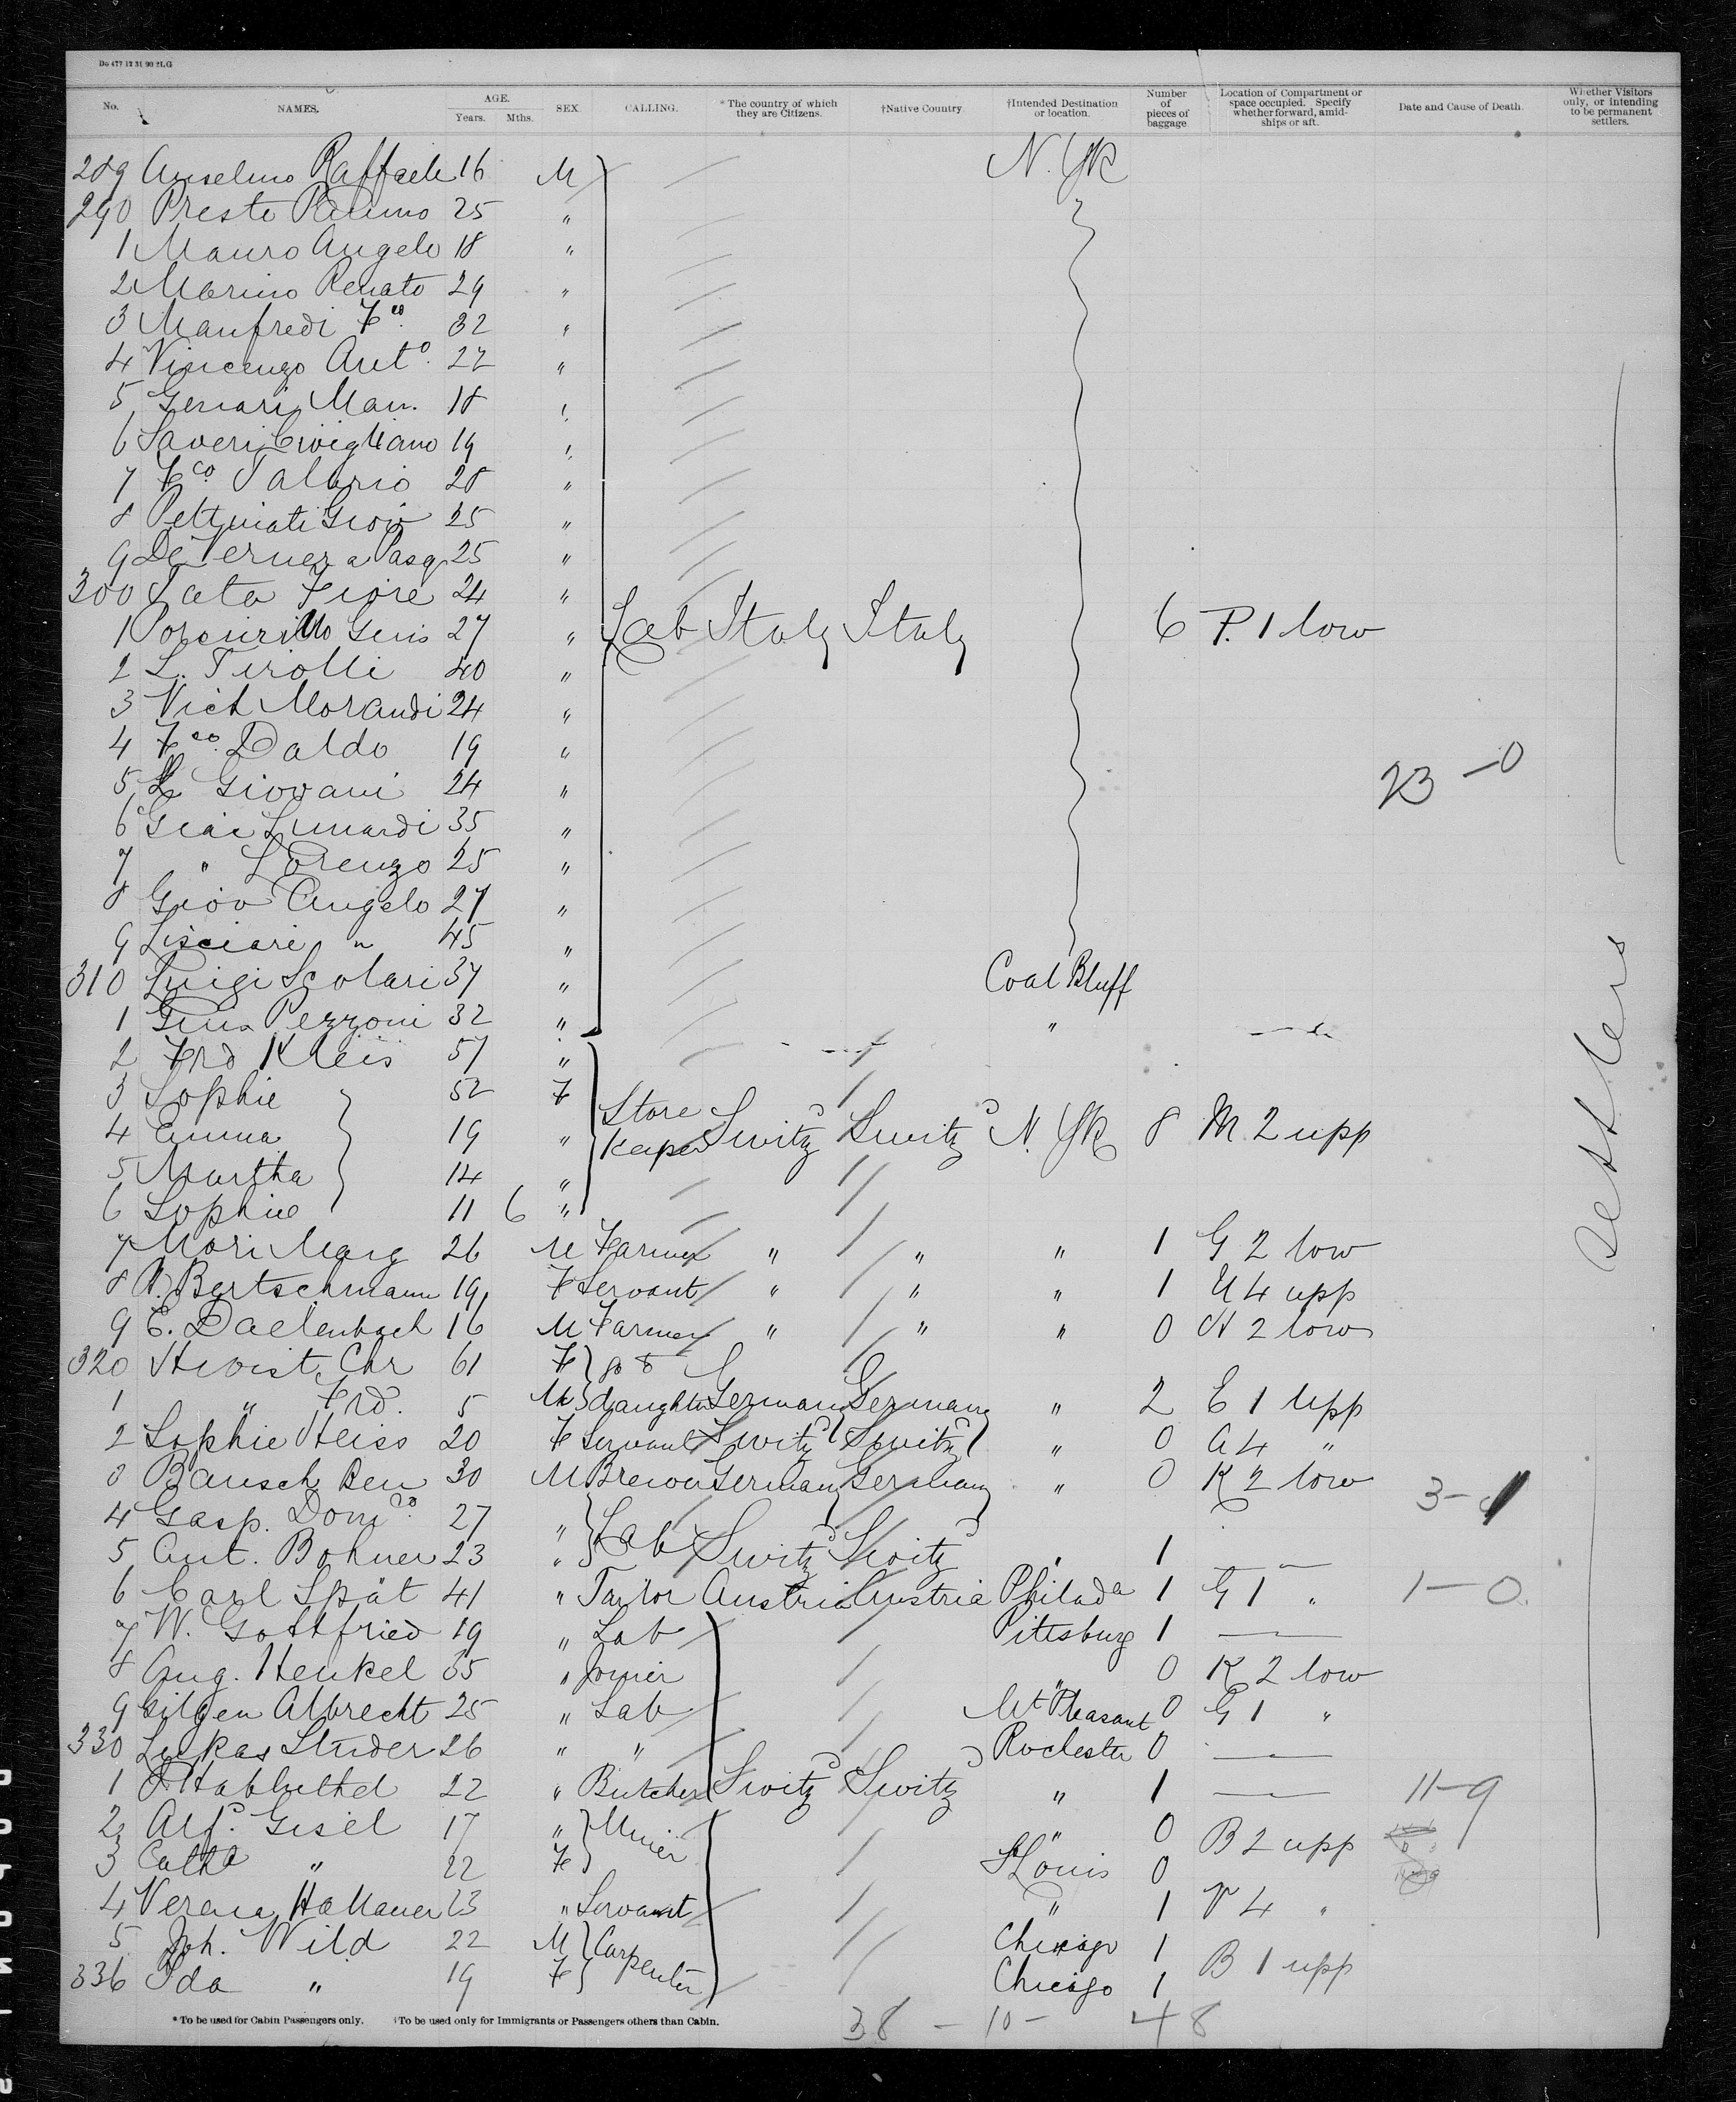 Do 477 12 31 90 2LG
No. NAMES. AGE. Years. Mths. SEX. CALLING. *The country of which they are Citizens. †Native Country †Intended Destination or location. Number of pieces of baggage Location of Compartment or space occupied. Specify whether forward, amidships or aft. Date and Cause of Death. Whether Visitors only, or intending to be permanent settlers.
289 Anselmo Raffaele 16 M N. Yk
290 Preste Palmino 25 "
1 Mauro Angelo 18 "
2 Marino Renato 29 "
3 Manfredi Fco. 32 "
4 Vincenzo Anto. 22 "
5 Genari Man. 18 "
6 Saveri Civigliano 19 "
7 Fco. Talario 28 "
8 Pettinati Giov 25 "
9 De Pasq 25 "
300 Tata Fiore 24 "
1 27 " Lab Italy Italy 6 P. 1 low
2 L. Tirolli 40 "
3 Vict Morandi 24 "
4 Fco. Daldo 19 "
5 Giovani 24 " 23 – 0
6 Lunardi 35 "
7 " Lorenzo 25 "
8 Giov Angelo 27 "
9 Lisciari " 45 "
310 Luigi Scolari 37 " Coal Bluff
1 Pezzoni 32 " "
2 Frd Kleis 57 "
3 Sophie 52 F
4 Emma 19 " Store Keeper Switz Switz N. Yk 8 M 2 upp
5 Martha 14 "
6 Sophie 11 6 "
7 Mori Marg 26 M Farmer " " " 1 G 2 low
8 Bertschmann 19 F Servant " " " 1 U 4 upp
9 E. Daetenbach 16 M Farmer " " " 0 H 2 low
320 Chr 61 F
1 " Frd. 5 M daughter Germany Germany " 2 E 1 upp
2 Sophie Heiss 20 F Servant Switz Switz " 0 G 4 "
3 Bausch Ben 30 M Brewer Germany Germany " 0 K 2 low 3 –
4 Gasp. Domco. 27 "
5 Ant. Bohner 23 " Lab Switz Switz " 1
6 Carl Spät 41 " Taylor Austria Austria Philada 1 G 1 " 1 – 0.
7 W. Gottfried 19 " Lab Pittsburg 1 —
8 Aug. Henkel 35 " Joiner " 0 K 2 low
9 Gilgen Albrecht 25 " Lab Mt Pleasant 0 G 1 "
330 Lukas Studer 26 " " Rochester 0 —
1 22 " Butcher Switz Switz " 1 — 11–9
2 Alf. Gisel 17 " Miner " 0 B 2 upp
3 Catha " 22 F St Louis 0
4 Verena Hallauer 23 " Servant " 1 V 4 "
5 Joh. Wild 22 M Carpenter Chicago 1 B 1 upp
336 Ida " 19 F Chicago 1
Settlers
*To be used for Cabin Passengers only. †To be used only for Immigrants or Passengers others than Cabin.
38 – 10 – 48